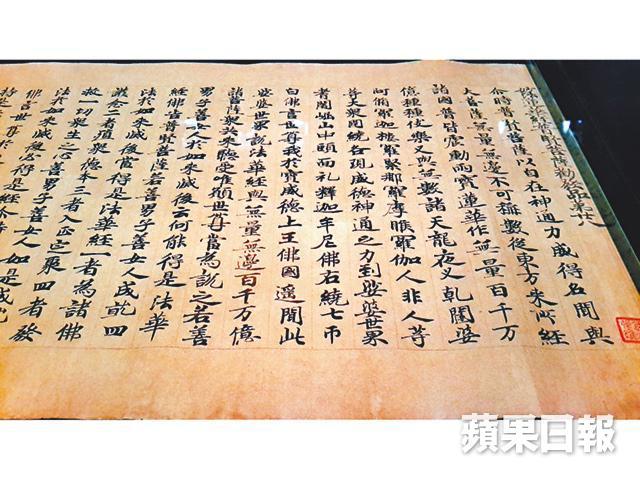 妙法蓮華經普賢菩薩勸發品第廿八
尒時普賢菩薩以自在神通力威德名聞與
大菩薩無量無邊不可稱數從東方来所經
諸國普皆震動雨寶蓮華作無量百千万
億種種伎樂又與無數諸天龍夜叉乹闥婆
阿脩羅迦樓羅緊那羅摩睺羅伽人非人等
尊大衆圍繞各現威德神通之力到娑婆世界
耆闍崛山中頭面礼釋迦牟尼佛右繞七帀
白佛言世尊我於寶威德上王佛國遥聞此
娑婆世界說法華經與無量無邊百千万億
諸菩薩衆共来聽受唯願世尊當為說之若善
男子善女人於如来滅後云何能得是法華
經佛告普賢菩薩若善男子善女人成就四
法於如来滅後當得是法華經一者為諸佛
護念二者殖衆德本三者入正定聚四者發
救一切衆生之心善男子善女人如是成就
法於如来滅後必得是經尒時
佛言世尊於
持是
蘋果日報